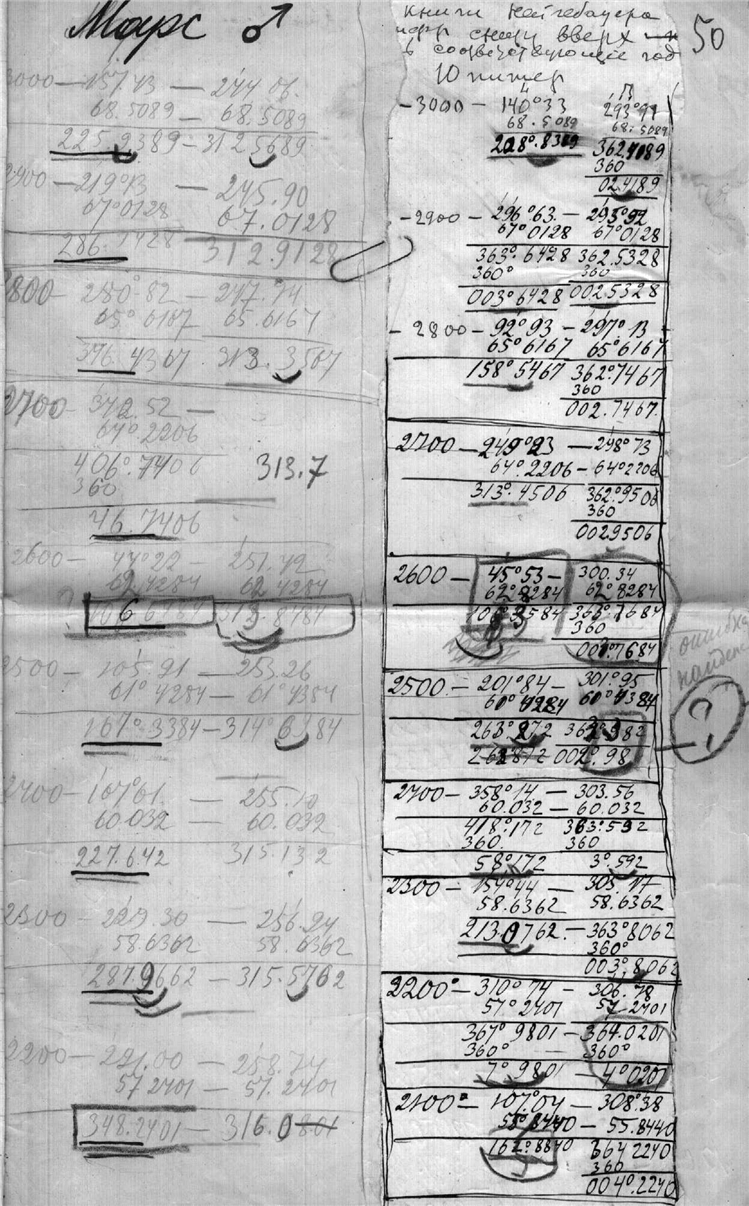 Марс ♂
3000 — 157.43 — 244.06.
68.5089 — 68.5089
225.9389 — 312.5689
2900 — 219°13 — 245.90
67°0128 67.0128
286.1428 312.9128
2800 — 280°82 — 247.74
65°6167 65.6167
313.3567
2700 — 342.52 —
64°2206
406°7406 313.7
360
46.7406
2600 — 44°22 — 251.42
2500 — 105.91 — 253.26
61°4284 — 61°4384
167°3384 — 314°6984
2400 — 167°61 — 255.10
60.032 — 60.032
227.642 315.132
2300 — 229.30 — 256.94
58.6362 58.6362
287.9662 — 315.5762
2200 — 291.00 — 258.74
57.2401 — 57.2401
348.2401 — 316.0
50
книги Нейгебауера
снизу вверх
в соответствующие год
Юпитер
-3000 — 140°33 293°91
68.5089 68.5089
208°.8389 362.4189
360
02.4189
-2900 — 296°63. — 295°52
67°0128 67°0128
363°.6428 362.5328
360° 360
003°6428 002.5328
-2800 — 92°93 — 297°13
65°6167 65°6167
158°5467 362°7467
360
002.7467.
2700 — 249°23 — 298°73
64°2206 — 64°2206
313°.4506 362°9506
360
0029506
2600 — 45°53 — 300.34
62°8284 62°8284
360
2500 — 201°84 — 301°95
2400 — 358°14 — 303.56
60.032 — 60.032
418°172 363°592
360. 360
58°172 3°.592
2300 — 154°44 — 305.17
58.6362 58.6362
213.0762. — 363°8062
360°
003°,8062
2200° — 310°74 — 306.78
57.°2401 57.2401
367°9801 — 364.0201
360° — 360°
7°9801 — 4°0201
2100° — 107°04 — 308°38
55°8440 — 55.8440
162°.8840 364 2240
360
004°.2240
ошибка
найдена
?